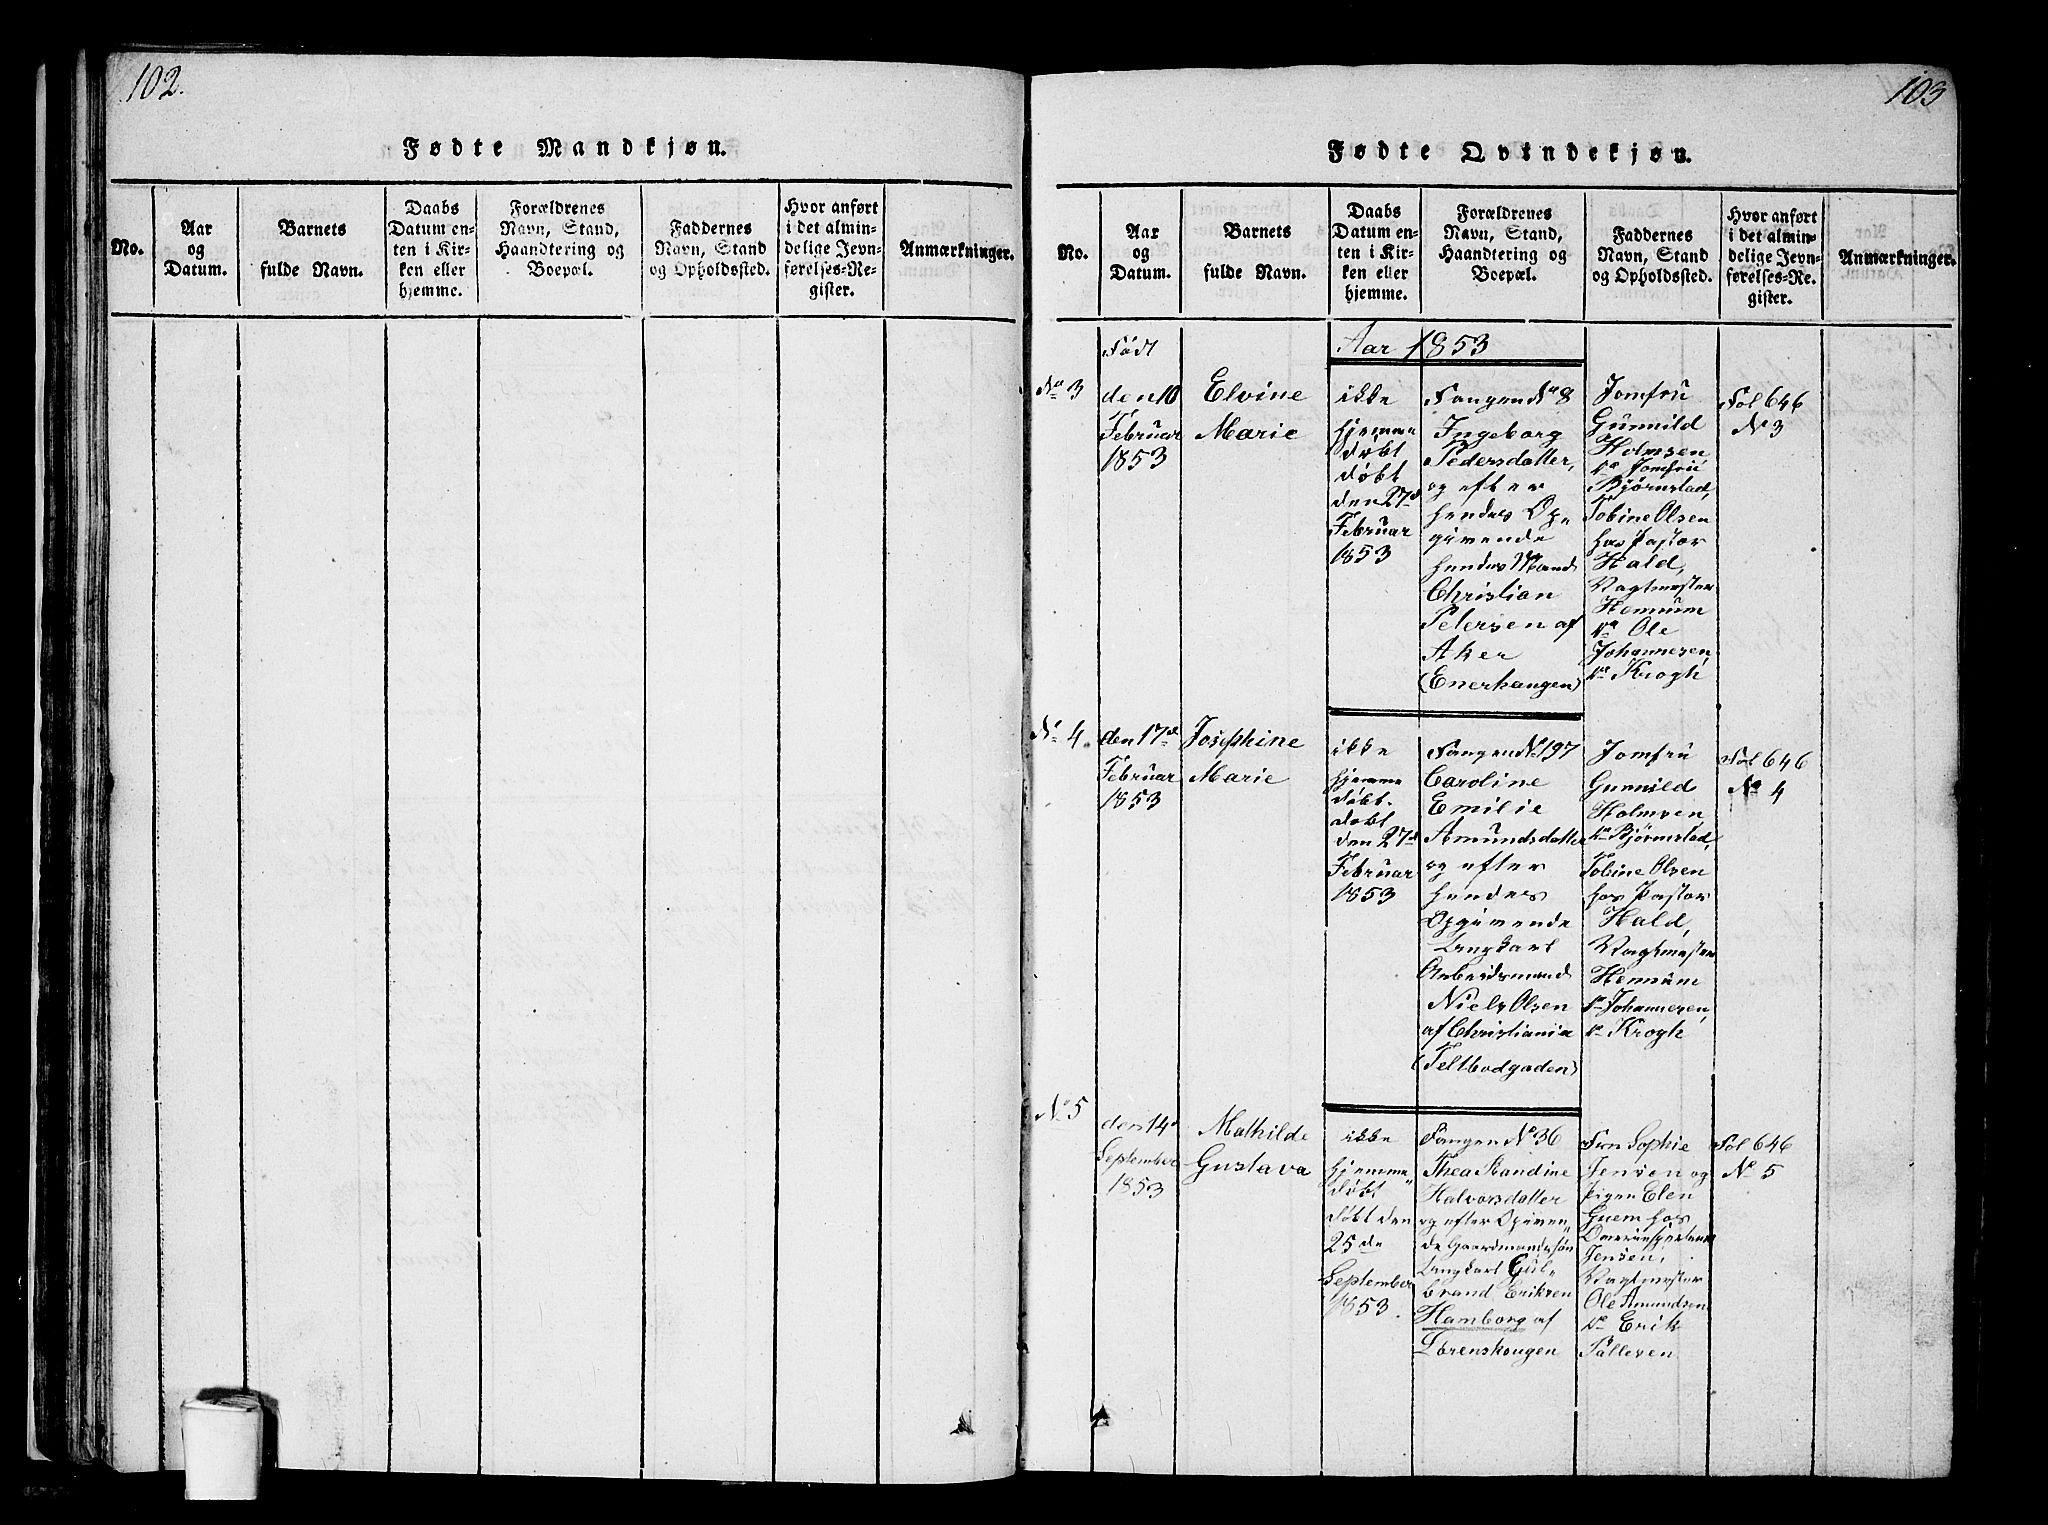 102.
Fødte Mandkjøn.
No.
Aar
og
Datum.
Barnets
fulde Navn.
Daabs
Datum en-
ten i Kir-
ken eller
hjemme.
Forældrenes
Navn, Stand,
Haandtering og
Boepæl.
Faddernes
Navn, Stand
og Opholdssted.
Hvor anført
i det almin-
delige Jevn-
førelses-Re-
gister.
Anmærkninger.
103
Fødte Qvindekjøn.
No.
Aar
og
Datum.
Barnets
fulde Navn.
Daabs
Datum en-
ten i Kir-
ken eller
hjemme.
Forældrenes
Navn, Stand,
Haandtering og
Boepæl.
Faddernes
Navn, Stand
og Opholdssted.
Hvor anført
i det almin-
delige Jevn-
førelses-Re-
gister.
Anmærkninger.
Aar 1853
No 3
Født
den 10
Februar
1853
Elvine
Marie
ikke
hjemme
døbt
døbt
den 27d
Februar
1853
Fangen No 8
Ingeborg
Pedersdatter,
og efter
hendes Op„
givende
hendes Mand
Christian
Petersen af
Aker
(Enerhaugen)
Jomfru
Gunnild
Holmsen
do Jomfru
Bjørnstad,
Tobine Olsen
hos Pastor
Hald,
Vagtmester
Hemnum
do Ole
Johannesen
do Krogh
Fol 646
No 3
No 4
den 17d
Februar
1853
Josephine
Marie
ikke
hjemme
døbt.
døbt
den 27d
Februar
1853
Fangen No 197
Caroline
Emilie
Amundsdatter
og efter
hendes
Opgivende
Ungkarl
Arbeidsmand
Niels Olsen
af Christiania
(Teltbodgaden)
Jomfru
Gunnild
Holmsen,
do Bjørnstad,
Tobine Olsen
hos Pastor
Hald,
Vagtmester
Hemnum
do Johannesen,
do Krogh
Fol 646
No 4
No 5
den 14d
September
1853
Mathilde
Gustava
ikke
hjemme„
døbt
døbt den
25de
September
1853.
Fangen No 36
Thea Randine
Halvorsdatter
og efter Opgiven„
de Gaardmandssøn
Ungkarl Gul„
brand Eriksen
Hamborg af
Lørenskougen
Fru Sophie
Jensen og
Pigen Elen
Guem hos
Jensen,
Vagtmester
Ole Amundsen
do Erik
Pallesen
Fol 646
No 5